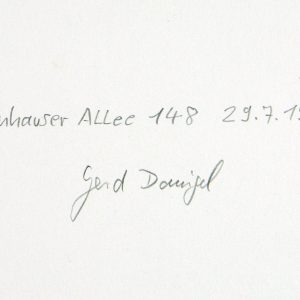 nhauser Allee 148 29.7.19
Gerd Danigel